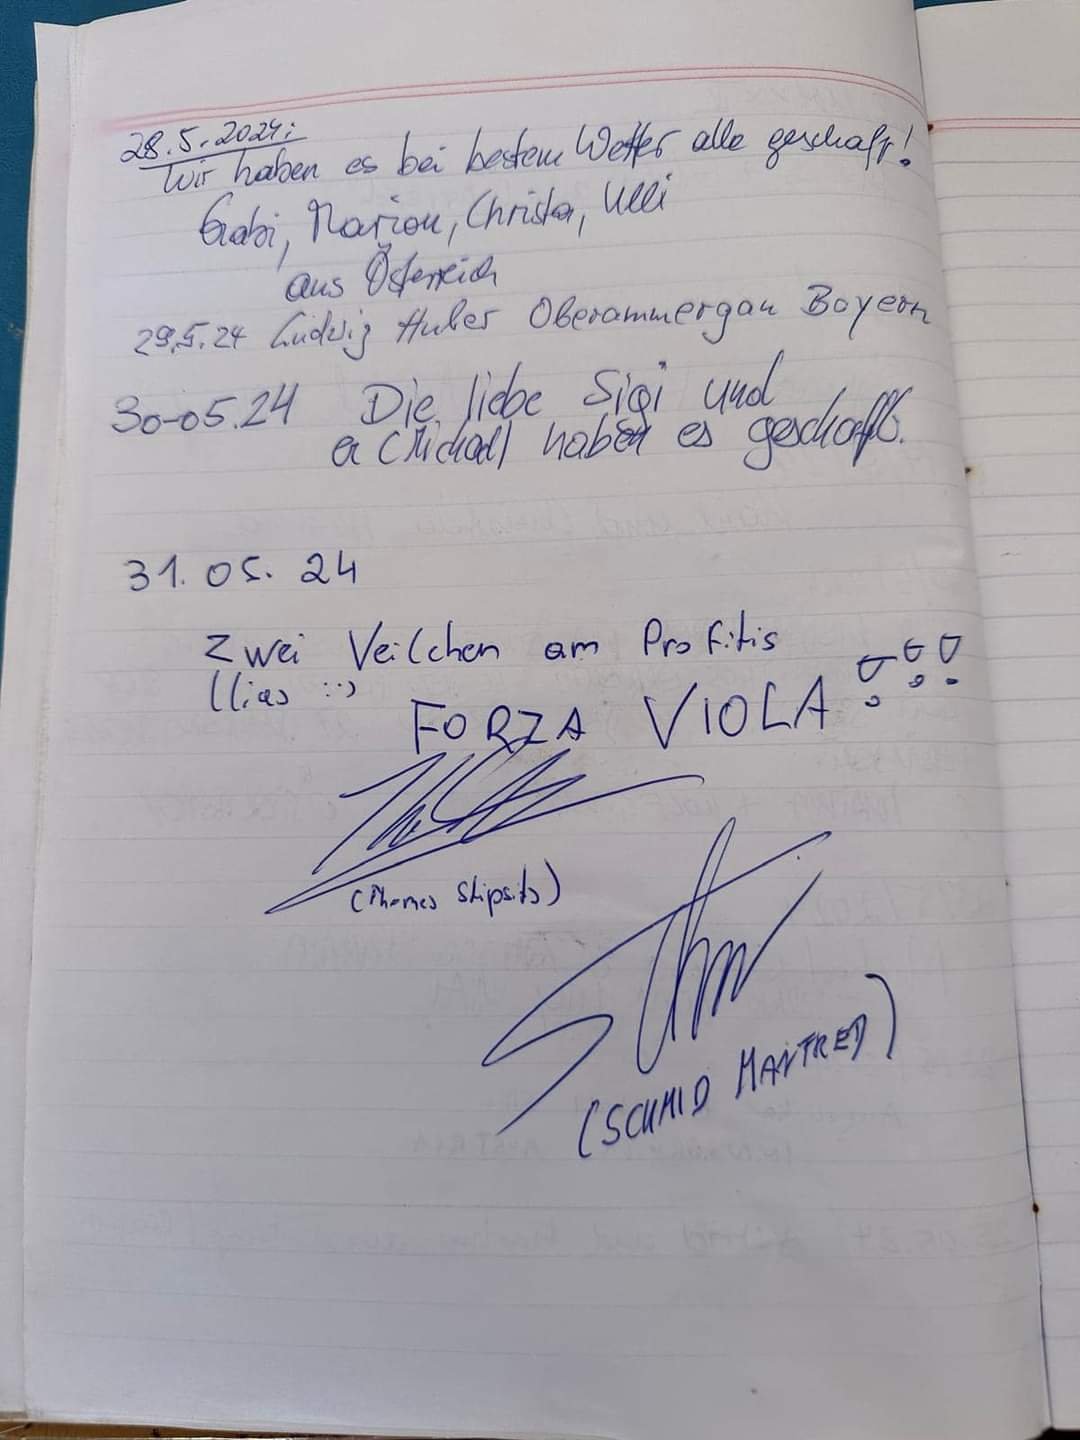 28.5.2024:
Wir haben es bei bestem Wetter alle geschafft!
Gabi, Marion, Christa, Ulli
aus Österreich
29.5.24 Ludwig Huber Oberammergau Bayern
30-05.24 Die liebe Sigi und
er (Michael) haben es geschafft.
31. 05. 24
Zwei Veilchen am Profitis
Ilias :)
FORZA VIOLA !!!
(Thomas Stipsits)
(SCHMID MANFRED)